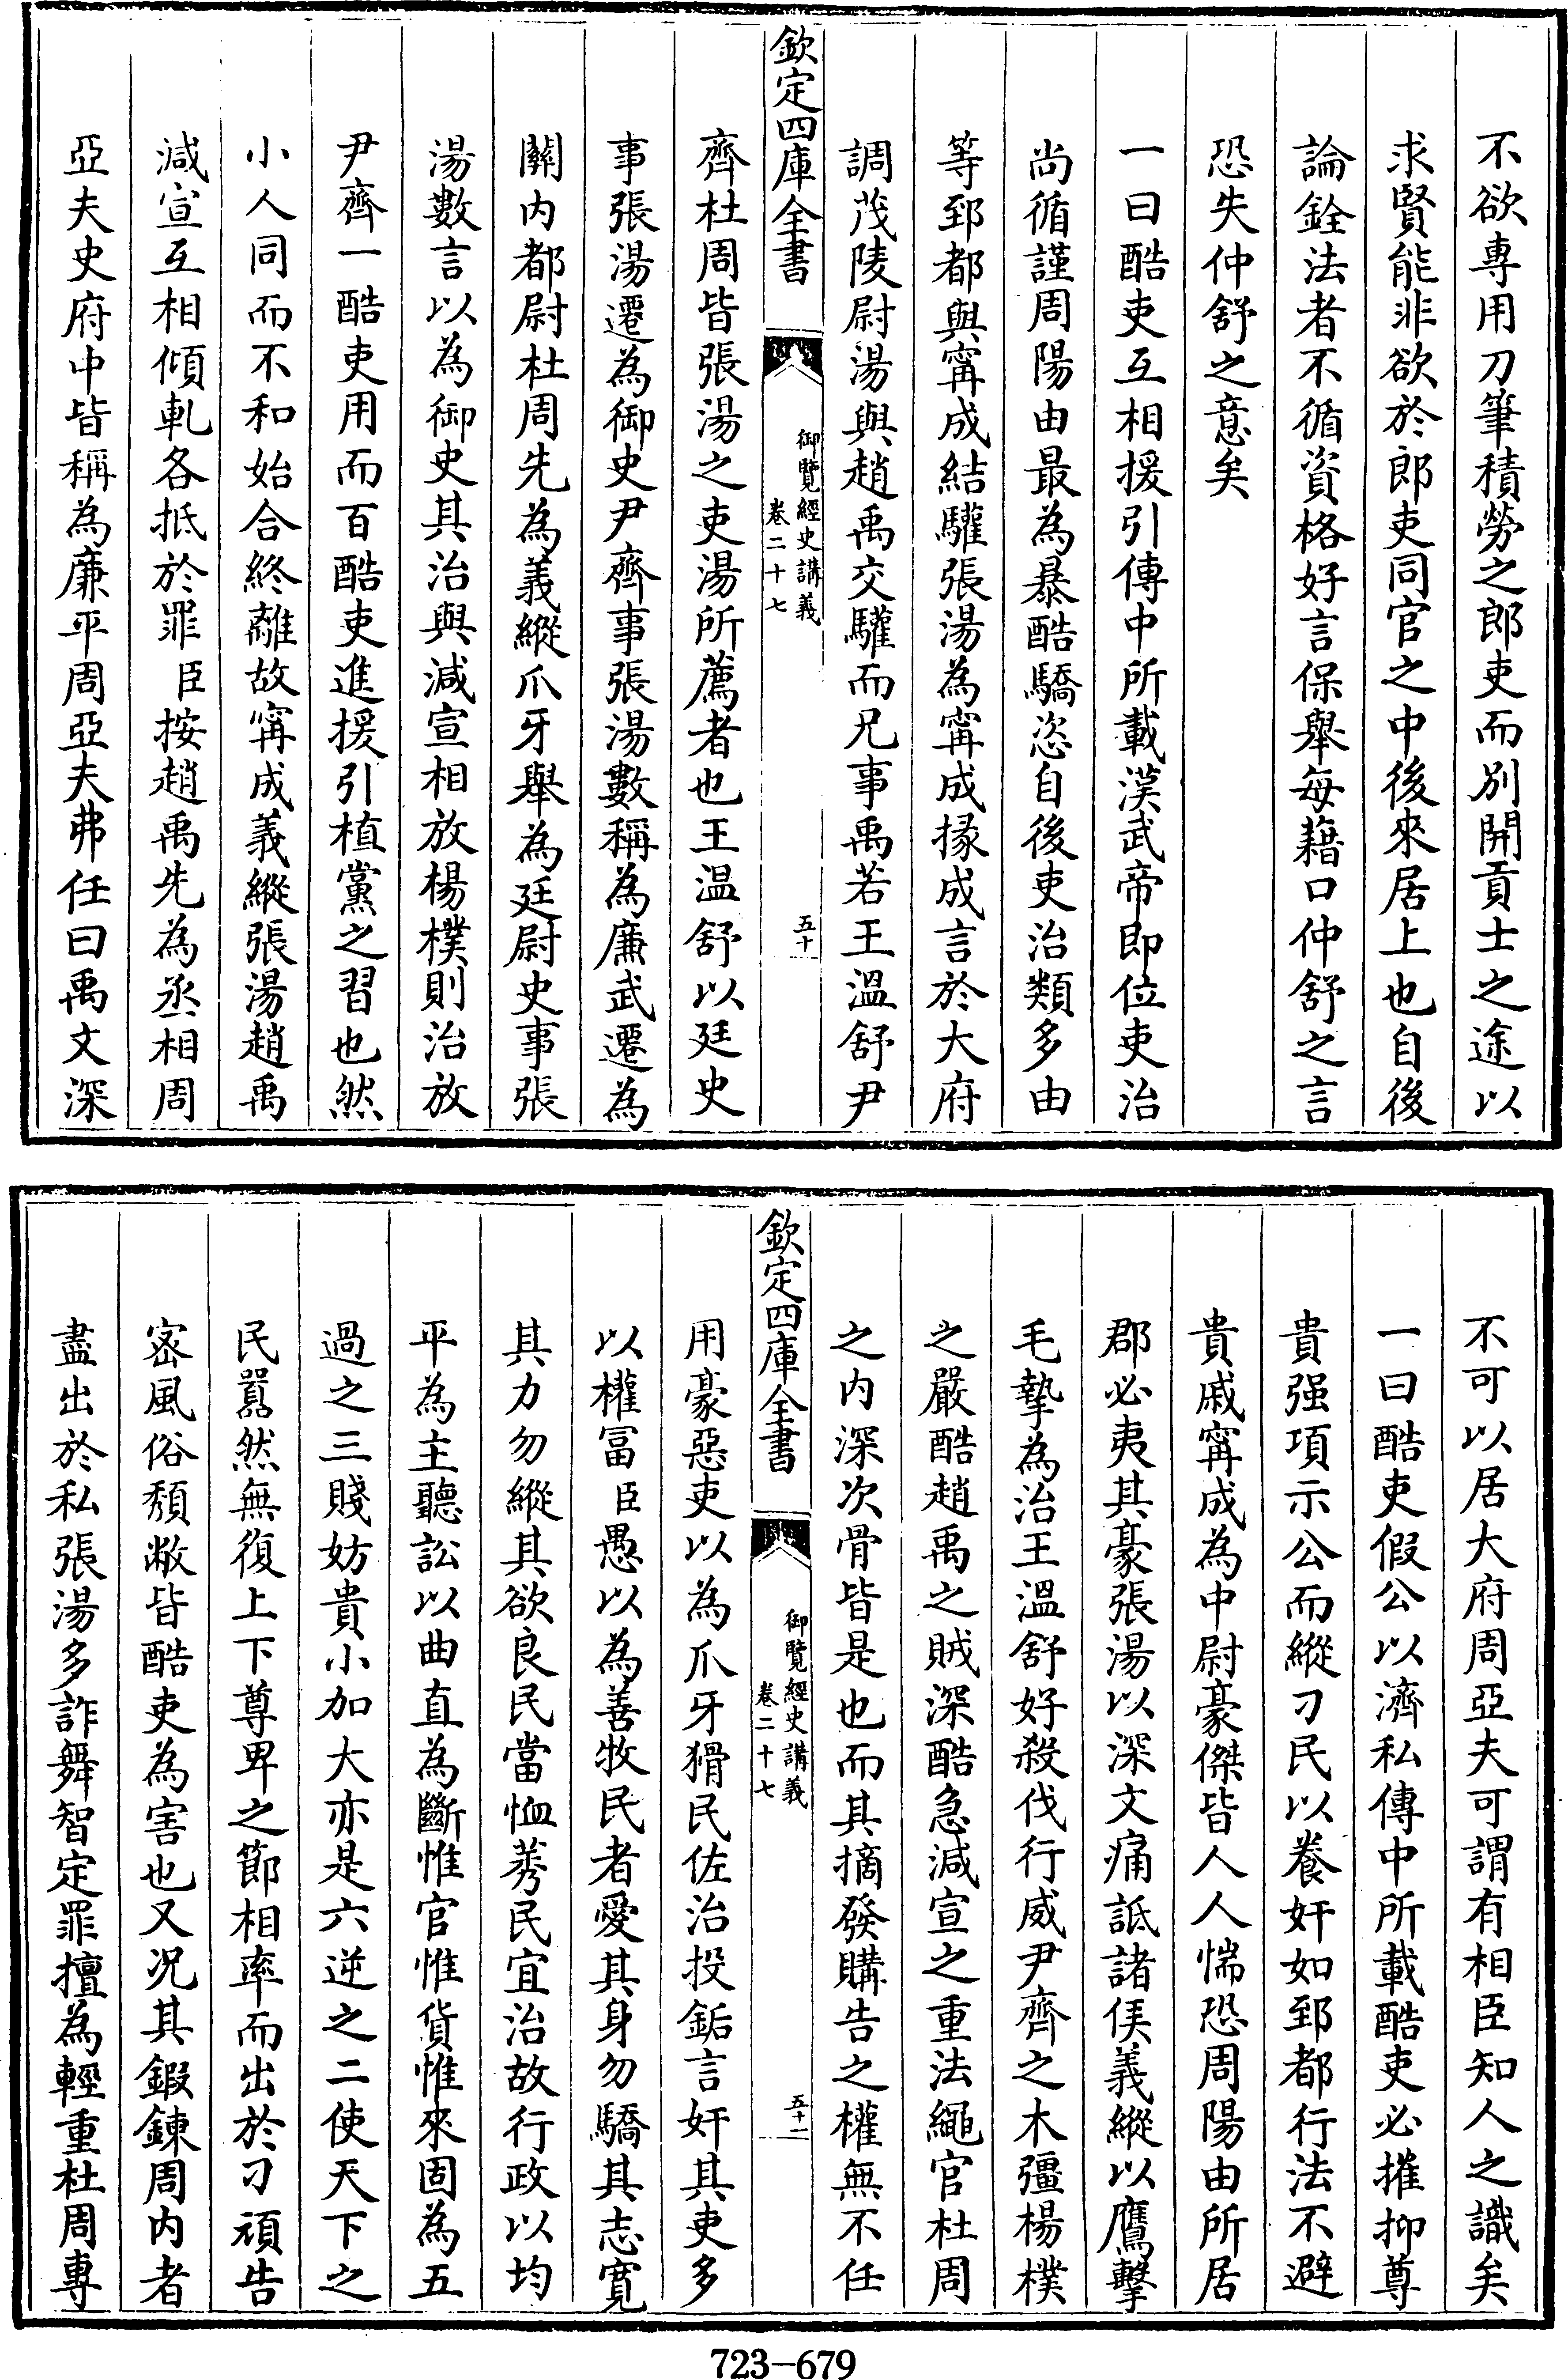 不欲專用刀筆積勞之郎吏而別開貢士之途以
求賢能非欲於郎吏同官之中後來居上也自後
論銓法者不循資格好言保舉每藉口仲舒之言
恐失仲舒之意矣
一曰酷吏互相援引傳中所載漢武帝即位吏治
尚循謹周陽由最為暴酷驕恣自後吏治類多由
等郅都與甯成結驩張湯為甯成掾成言於大府
調茂陵尉湯與趙禹交驩而兄事禹若王溫舒尹
欽定四庫全書
御覽經史講義
卷二十七
五十
齊杜周皆張湯之吏湯所薦者也王温舒以廷史
事張湯遷為御史尹齊事張湯數稱為廉武遷為
關内都尉杜周先為義縱爪牙舉為廷尉史事張
湯數言以為御史其治與減宣相放楊樸則治放
尹齊一酷吏用而百酷吏進援引植黨之習也然
小人同而不和始合終離故甯成義縱張湯趙禹
減宣互相傾軋各抵於罪臣按趙禹先為丞相周
亞夫史府中皆稱為廉平周亞夫弗任曰禹文深
不可以居大府周亞夫可謂有相臣知人之識矣
一曰酷吏假公以濟私傳中所載酷吏必摧抑尊
貴强項示公而縱刁民以養奸如郅都行法不避
貴戚甯成為中尉豪傑皆人人惴恐周陽由所居
郡必夷其豪張湯以深文痛詆諸侯義縱以鷹擊
毛摯為治王溫舒好殺伐行威尹齊之木彊楊樸
之嚴酷趙禹之賊深酷急減宣之重法繩官杜周
之内深次骨皆是也而其摘發購告之權無不任
欽定四庫全書
御覽經史講義
卷二十七
五十一
用豪惡吏以為爪牙猾民佐治投缿言奸其吏多
以權冨臣愚以為善牧民者愛其身勿驕其志寛
其力勿縱其欲良民當恤莠民宜治故行政以均
平為主聽訟以曲直為斷惟官惟貨惟來固為五
過之三賤妨貴小加大亦是六逆之二使天下之
民囂然無復上下尊卑之節相率而出於刁頑告
宻風俗頹敝皆酷吏為害也又况其鍜錬周内者
盡出於私張湯多詐舞智定罪擅為輕重杜周專
723-679